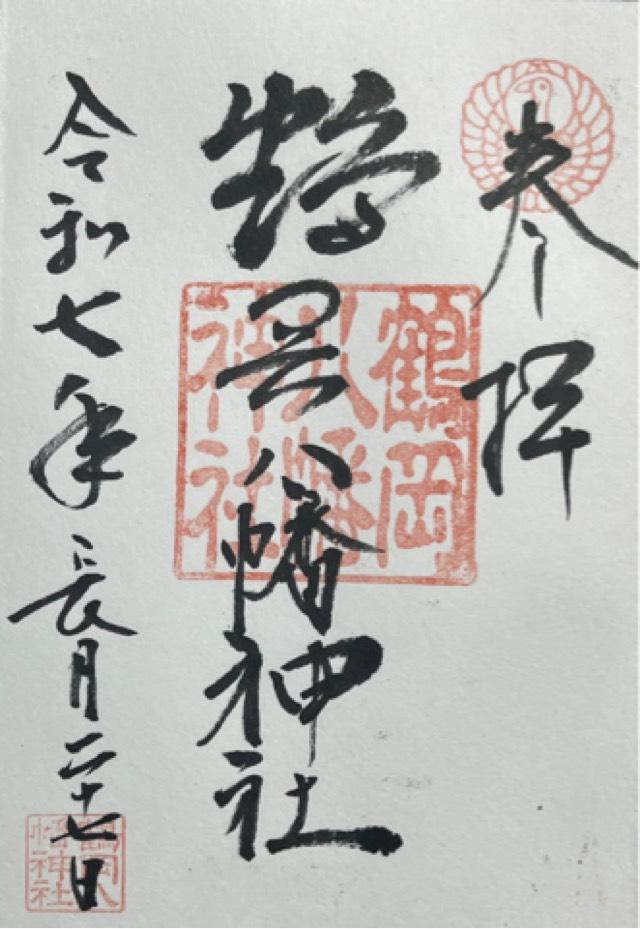 参拝
鶴岡八幡神社
令和七年長月二十七日
鶴岡
八幡
神社
鶴岡八
幡神社